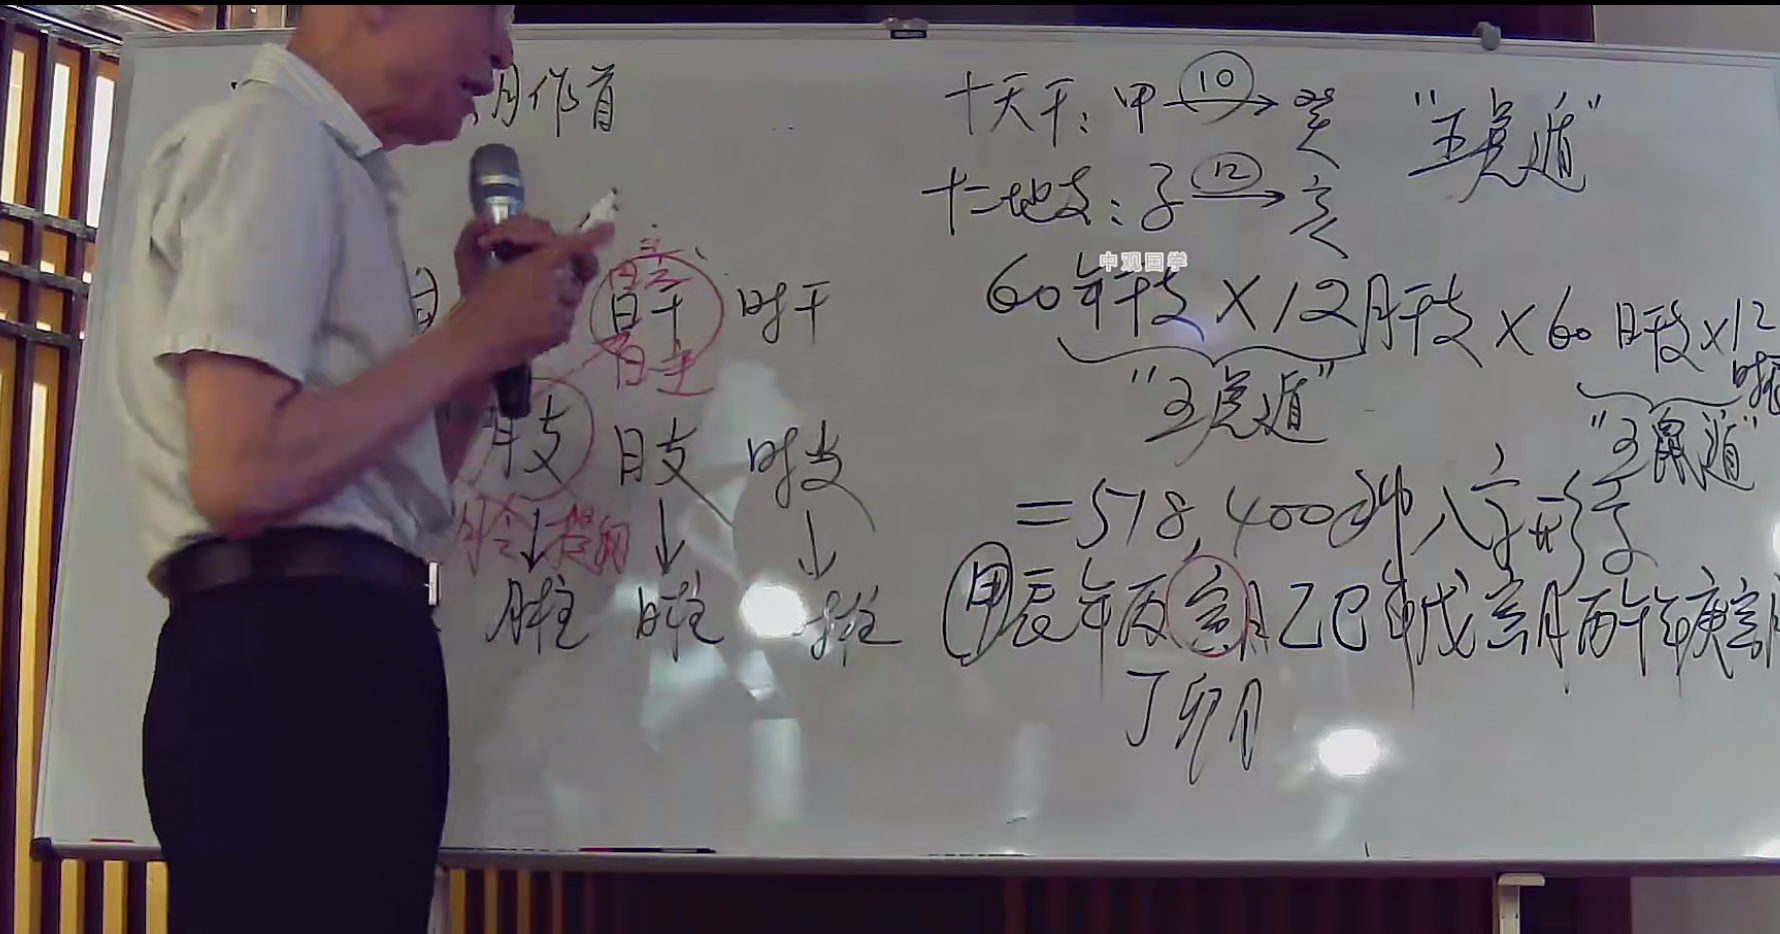 月作首
十天干：甲 10 → 癸 "五虎遁"
十二地支：子 12 → 亥
中观国学
60年干支×12月干支×60日干支×12时
"五虎遁" "五鼠遁"
=518,400种八字形式
甲辰年丙寅月乙巳年戊寅月丙午年庚寅月
丁卯月
日元
日干 时干
日主
月支 日支 时支
月令 提纲
月柱 日柱 时柱